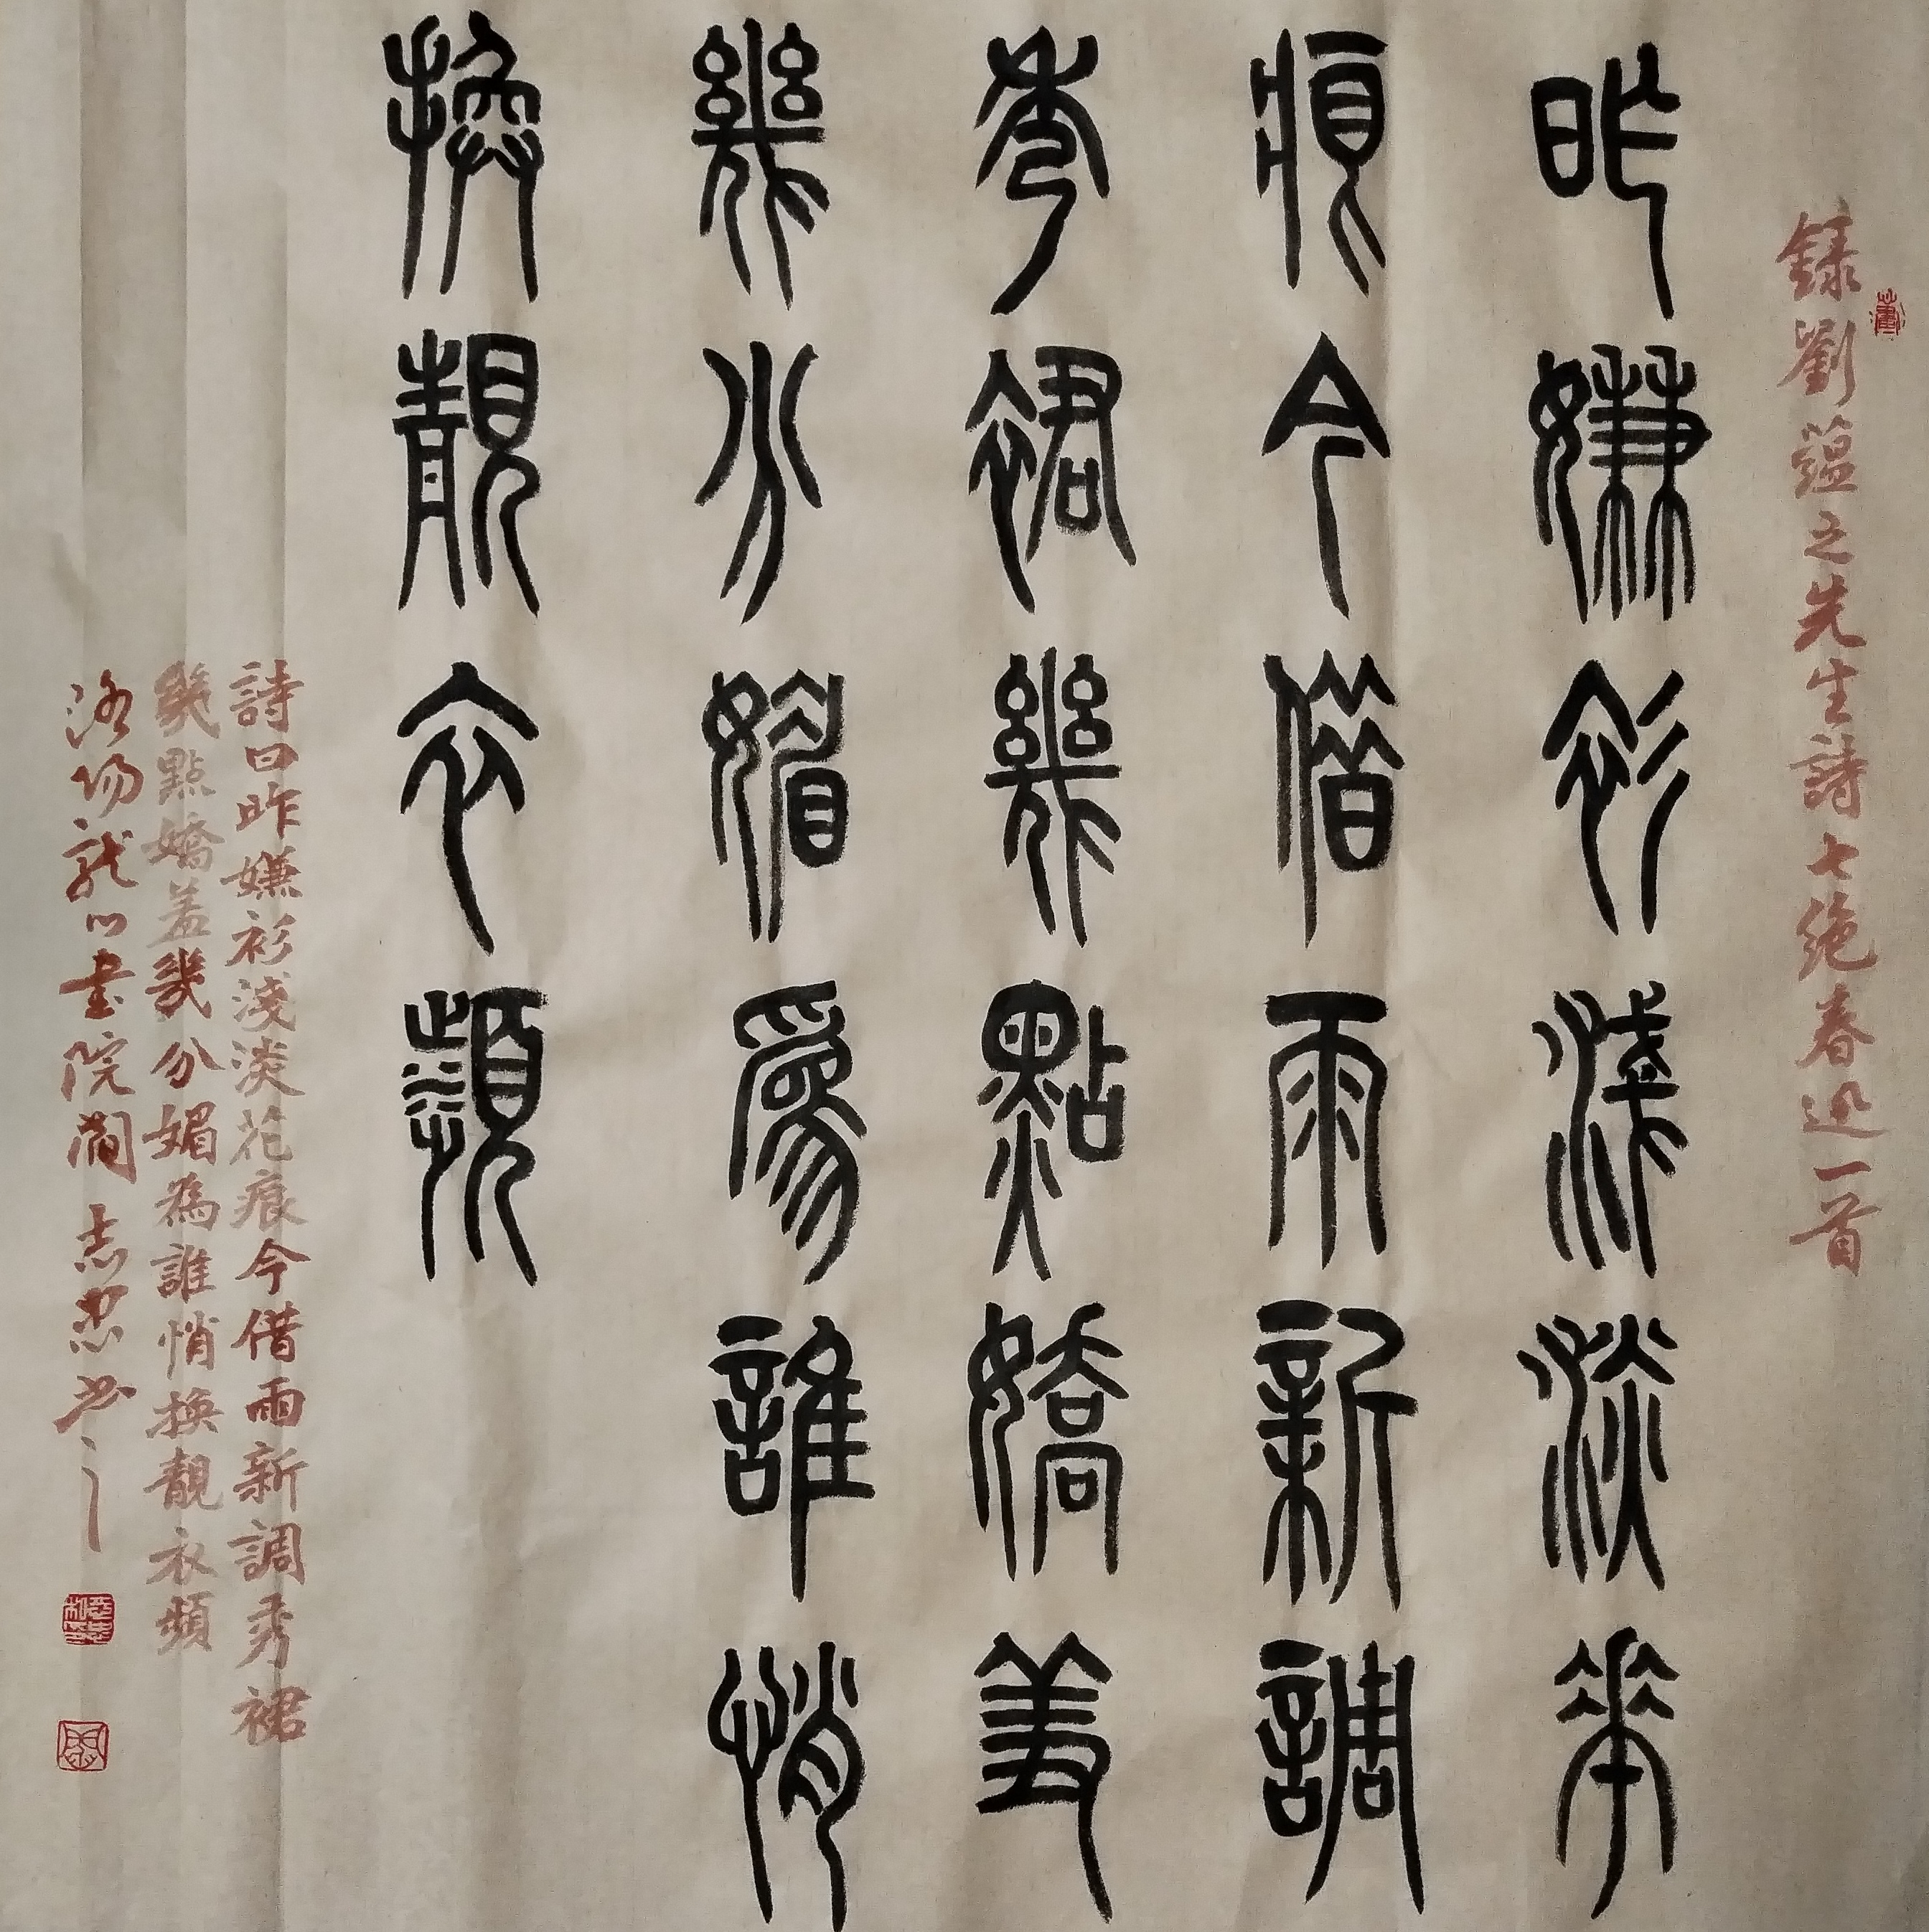 錄劉蘊之先生詩七绝春迅一首
昨嫌衫淺淡花
痕今借雨新調
秀裙幾點嬌羞
幾分媚爲誰悄
換靚衣頻
詩曰昨嫌衫淺淡花痕今借雨新調秀裙
幾點嬌羞幾分媚為誰悄換靚衣頻
洛阳龙门書院閻志忠书